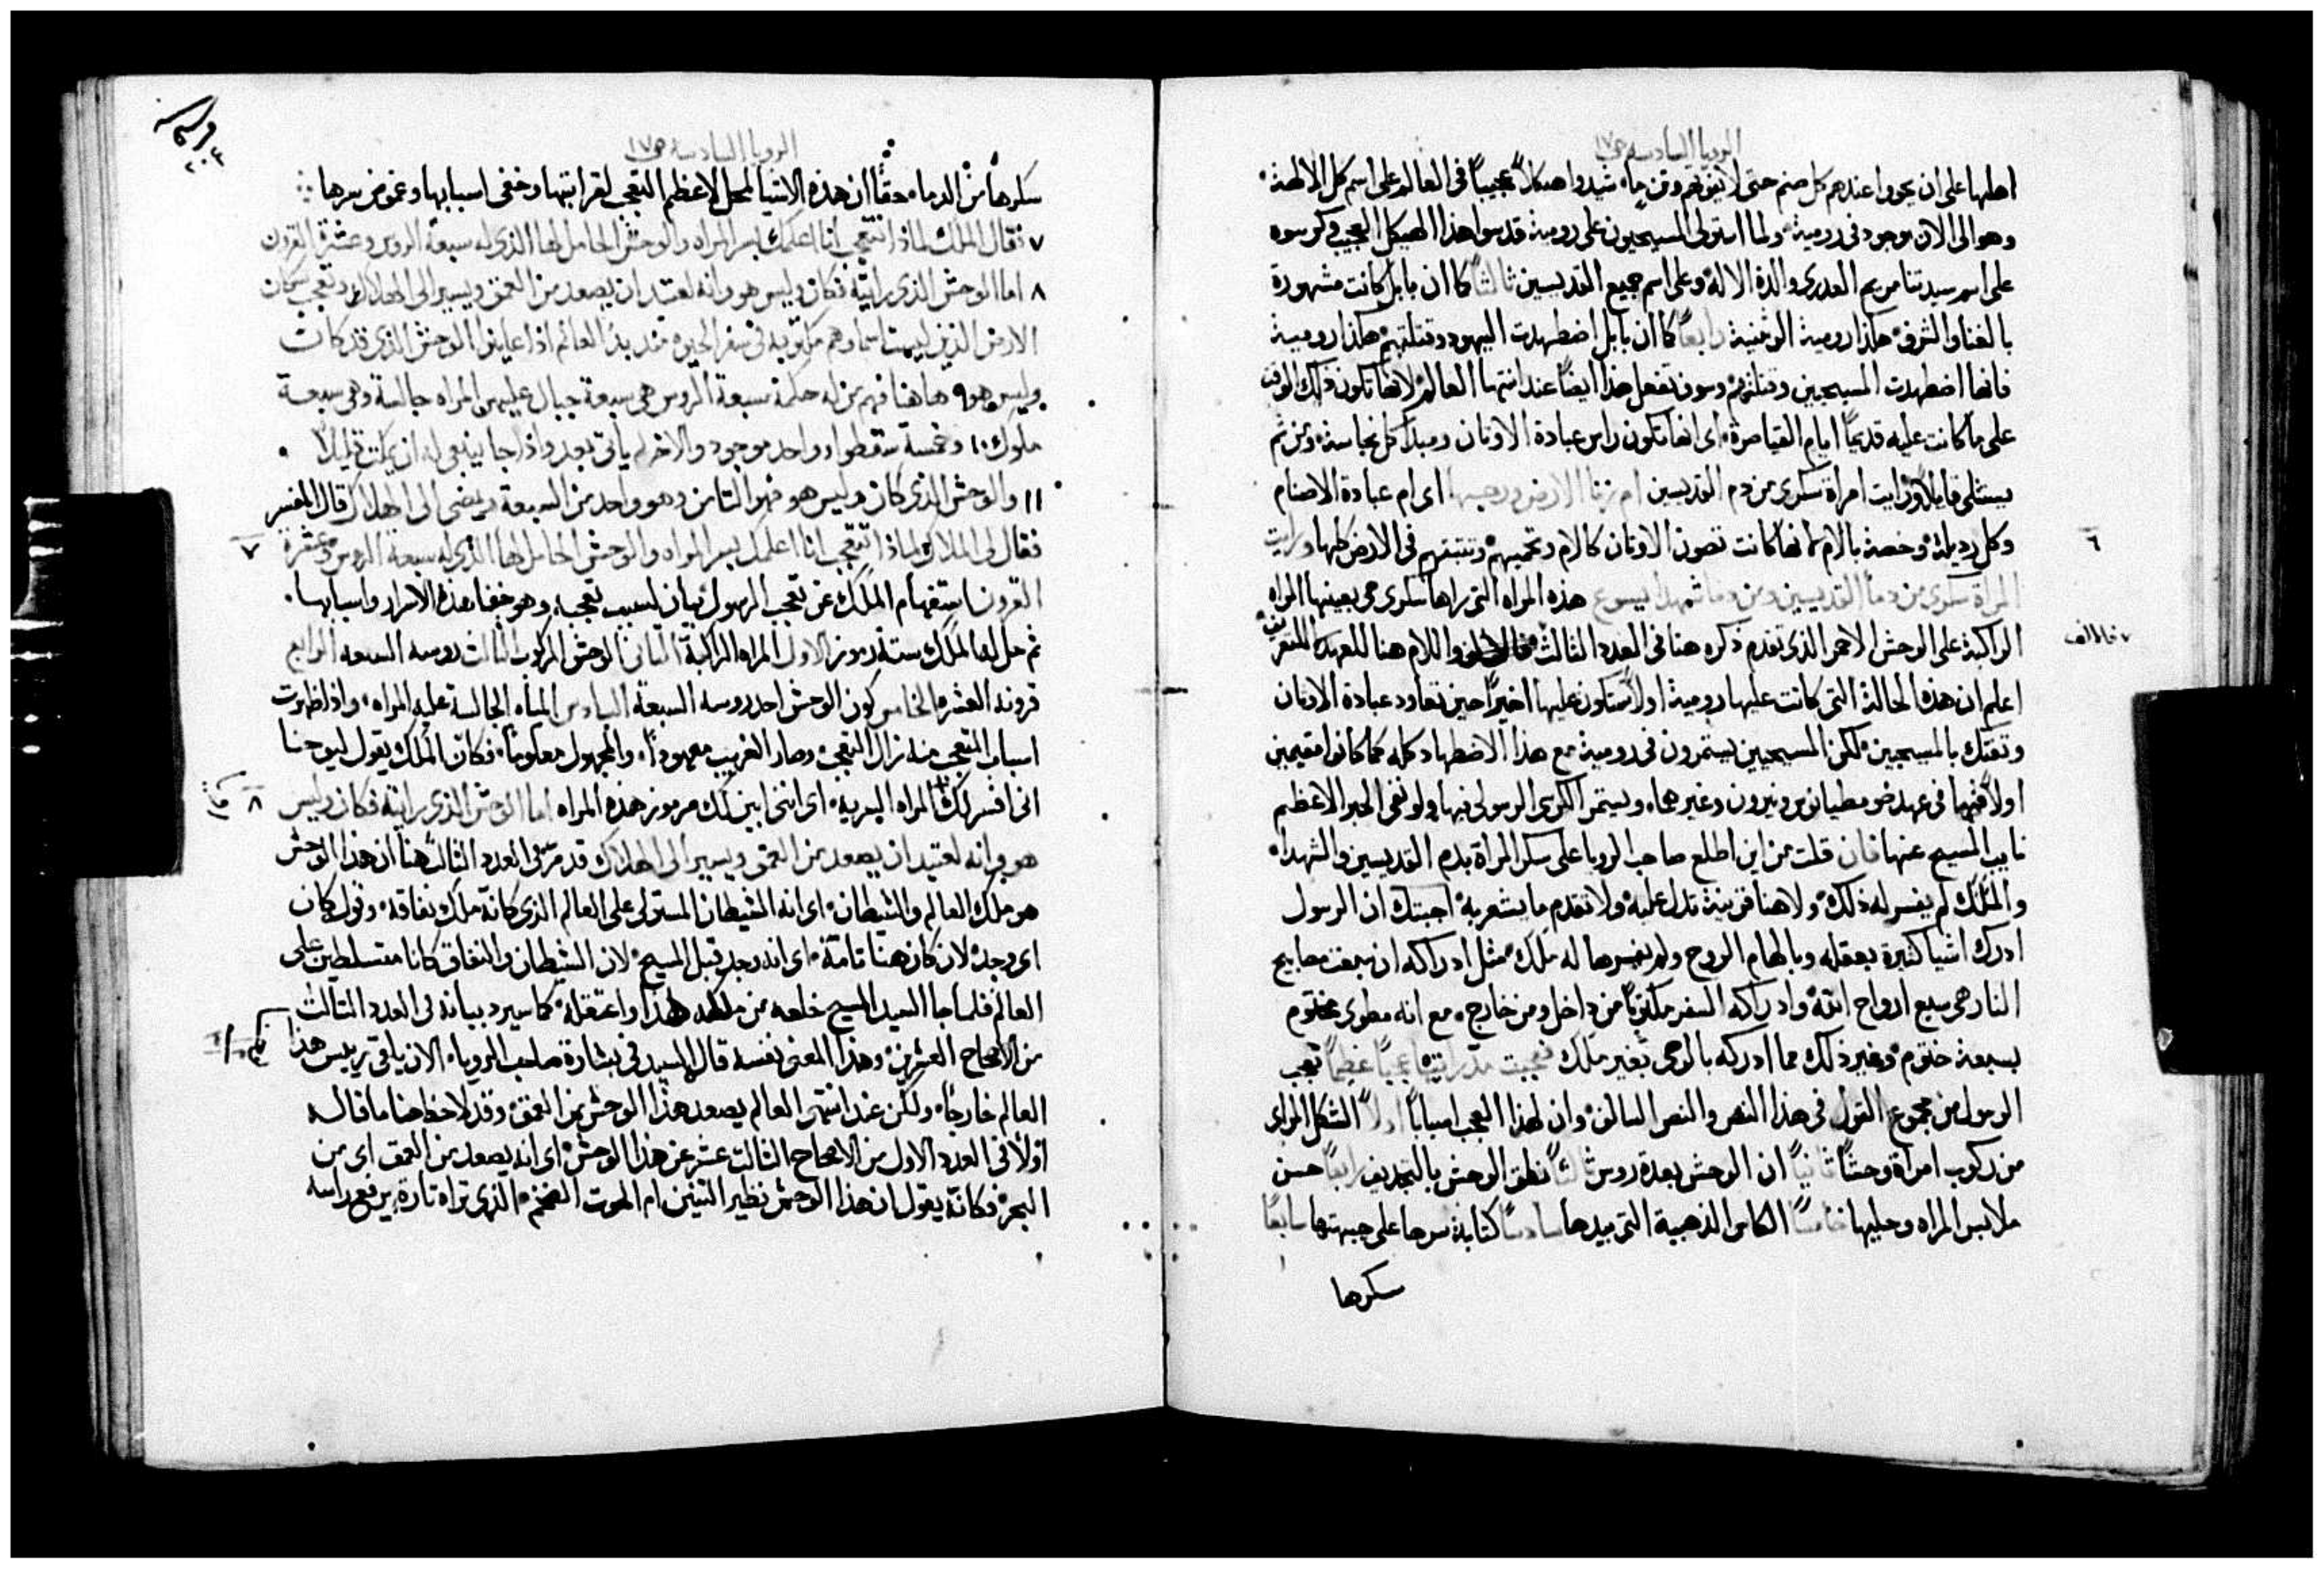 الرويا السادسة ص١٧
اهلها على ان يحووا عندهم كل صنم حتى لا يفوتهم وثن ما، شيدوا هيكلاً عجيباً في العالم على اسم كل الالهة
وهو الى الان موجود في رومية ولما استولى المسيحيون على رومية قدسوا هذا الهيكل العجيب وكرسوه
على اسم سيدتنا مريم العدرى والدة الاله وعلى اسم جميع القديسين ثالثاً كما ان بابل كانت مشهورة
بالغنا والشرف هكذا رومية الوثنية رابعاً كما ان بابل اضطهدت اليهود وقتلتهم هكذا رومية
فانها اضطهدت المسيحيين وقتلتهم وسوف تفعل هذا ايضاً عند انتها العالم لانها تكون ذلك الوقت
على ما كانت عليه قديماً ايام القياصرة اى انها تكون راس عبادة الاوثان ومبدا كل نجاسة ومن ثم
يستتلى قايلاً ورايت امراة سكرى من دم القديسين ام زنا الارض ورجسها اى ام عبادة الاصنام
وكل رذيلة وخصه بالام لانها كانت تصون الاوثان كالام وتحميهم وتثبتهم في الارض كلها ورايت
٦
المراة سكرى من دما القديسين ومن دما شهدا يسوع هذه المراه التي راها سكرى هي بعينها المراه
الراكبة على الوحش الاحمر الذي تقدم ذكره هنا في العدد الثالث فالالف واللام هنا للعهد للتعريف
اعلم ان هذه الحالة التي كانت عليها رومية اولاً ستكون عليها اخيراً حين تعاود عبادة الاوثان
وتفتك بالمسيحيين لكن المسيحيين يستمرون في رومية مع هذا الاضطهاد كله كما كانوا مقيمين
اولاً فيها في عهد ضوميطيانوس ونيرون وغيرهما، ويستمر الكرسي الرسولي فيها ولو نفى الحبر الاعظم
نايب المسيح عنها فان قلت من اين اطلع صاحب الرويا على سكر المراة بدم القديسين والشهداء
والملك لم يفسر له ذلك ولا هنا قرينة تدل عليه ولا تقدم ما يشعر به اجبتك ان الرسول
ادرك اشيا كثيرة بعقله وبالهام الروح ولم يفسرها له ملك مثل ادراكه ان سبعة مصابيح
النار هي سبع ارواح الله وادراكه السفر مكتوباً من داخل ومن خارج مع انه مطوى مختوم
بسبعة ختوم وغير ذلك مما ادركه بالوحى بغير ملك فعجبت مذ رايتها عجباً عظيماً تعجب
الرسول من مجموع القول في هذا النص والنص السالف وان لهذا العجب اسباباً اولاً الشكل المراى
من ركوب امراة وحشاً ثانياً ان الوحش بعدة روس ثالثاً نطق الوحش بالتجديف رابعاً حسن
ملابس المراه وحليها خامساً الكاس الذهبية التي بيدها سادساً كتابة سرها على جبهتها سابعاً
سكرها
الرويا السادسة ص١٧
سكرها من الدماء حقاً ان هذه الاشيا لمحل لاعظم التعجب لغرابتها وخفى اسبابها وغموض سرها
٧ فقال الملك لماذا تتعجب انا اعلمك بسر المراه والوحش الحامل لها الذي له سبعة الروس وعشرة القرون
٨ اما الوحش الذي رايته فكان وليس هو وانه لعتيد ان يصعد من العمق ويسير الى الهلاك وتعجب سكان
الارض الذين ليست اسماوهم مكتوبة في سفر الحيوه منذ بدء العالم اذا عاينوا الوحش الذي قد كانت
وليس هو ٩ هاهنا فهم من له حكمة سبعة الروس هي سبعة جبال عليهن المراه جالسة وهي سبعة
ملوك ١٠ وخمسة سقطوا وواحد موجود والاخر لم ياتى بعد واذا جا ينبغى له ان يمكث قليلاً
١١ والوحش الذي كان وليس هو فهو الثامن وهو واحد من السبعة ويمضى الى الهلاك قال المفسر
فقال لى الملاك لماذا تتعجب انا اعلمك بسر المراه والوحش الحامل لها الذي له سبعة الروس وعشرة
٧
القرون استفهام الملك عن تعجب الرسول بيان لسبب تعجبه وهو خفا هذه الاسرار واسبابها
ثم حل لها الملك ستة رموز الاول المراه الراكبة الثاني الوحش المركوب الثالث روسه السبعة الرابع
قرونه العشره الخامس كون الوحش احد روسه السبعة السادس المياه الجالسة عليه المراه واذا ظهرت
اسباب المتعجب منه زال التعجب وصار الغريب معهوداً، والمجهول معلوماً، فكان الملك يقول ليوحنا
انى افسر لك المراه السرية اى اننى ابين لك مرموز هذه المراه اما الوحش الذي رايته فكان وليس
٨
هو وانه لعتيد ان يصعد من العمق ويسير الى الهلاك قد مر فى العدد الثالث هنا ان هذا الوحش
هو ملك العالم والشيطان اى انه الشيطان المستولى على العالم الذي كانه ملك نفاقه وقوله كان
اى وجد لان كان هنا تامة اى انه وجد قبل المسيح لان الشيطان والنفاق كانا متسلطين على
العالم فلما جا السيد المسيح خلعه من ملكه هذا واعتقله كما سيرد بيانه في العدد الثالث
من الاصحاح العشرين وهذا المعنى نفسه قال السيد في بشارة صاحب الرويا، الان ياقى رييس هذا
العالم خارجاً ولكن عند انتهى العالم يصعد هذا الوحش من العمق وقد لاحظ هنا ما قاله
اولاً في العدد الاول من الاصحاح الثالث عشر عن هذا الوحش اى انه يصعد من العمق اى من
البحر فكانه يقول ان هذا الوحش نظير التنين ام الحوت الضخم الذي تراه تارة يرفع راسه